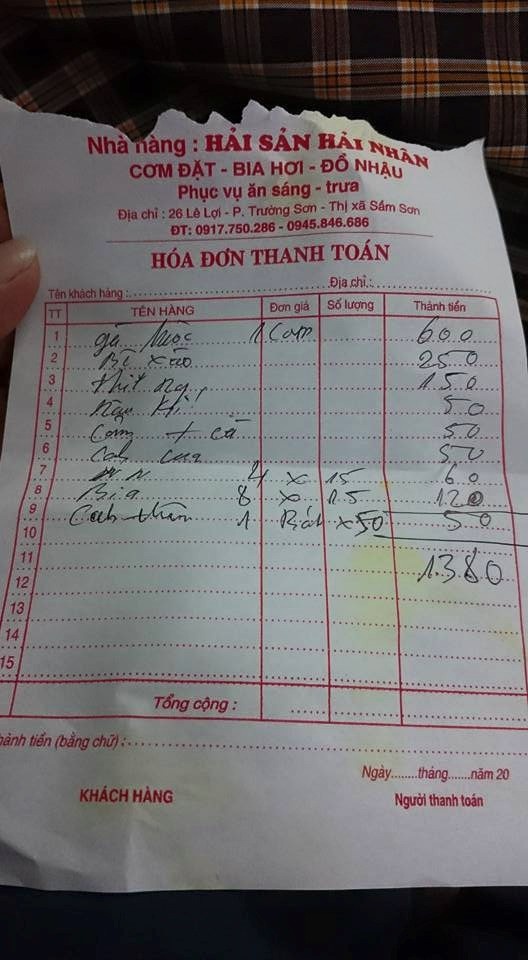 Nhà hàng : HẢI SẢN HẢI NHÂN
CƠM ĐẶT - BIA HƠI - ĐỒ NHẬU
Phục vụ ăn sáng - trưa
Địa chỉ : 26 Lê Lợi - P. Trường Sơn - Thị xã Sầm Sơn
ĐT: 0917.750.286 - 0945.846.686
HÓA ĐƠN THANH TOÁN
Tên khách hàng : Địa chỉ :
TT TÊN HÀNG Đơn giá Số lượng Thành tiền
1 gà luộc 1 con 600
2 Bò xào 250
3 thịt 150
4 50
5 Cơm + cà 50
6 Canh cua 50
7 4 x 15 60
8 Bia 8 x 15 120
9 Canh 1 Bát x 50 50
10
11 1380
12
13
14
15
Tổng cộng :
hành tiền (bằng chữ) :
Ngày........tháng.......năm 20
KHÁCH HÀNG Người thanh toán